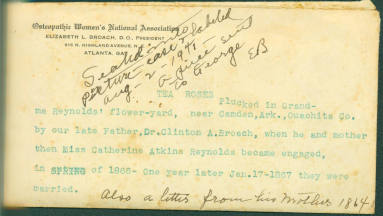 Osteopathic Women's National Association
ELIZABETH L. BROACH, D.O., PRESIDENT
N. HIGHLAND AVENUE, N.E.
ATLANTA, GA.
Sealed in
picture case & labeled
Aug - 2 - 1941
a piece sent
to George EB
TEA ROSES
Plucked in Grand-
ma Reynolds' flower-yard, near Camden, Ark., Ouachita Co.
by our late Father, Dr. Clinton A. Broach, when he and mother
then Miss Catherine Atkins Reynolds became engaged,
in SPRING of 1866- One year later Jan.17-1867 they were
married.
Also a letter from his Mother 1864